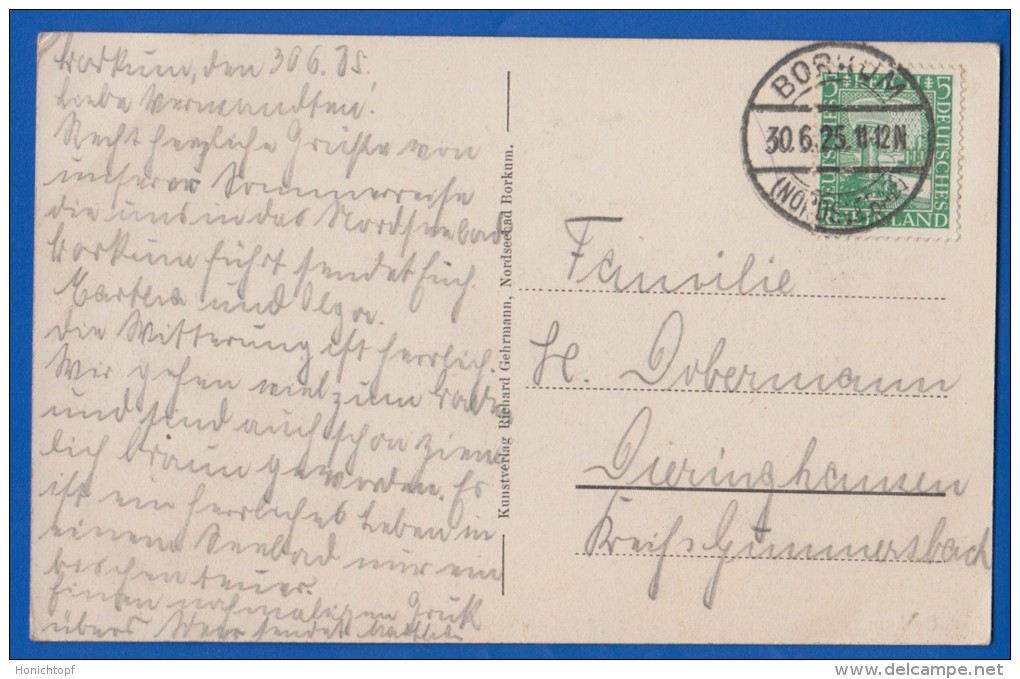 Borkum, den 30 6. 25.
Liebe Verwandten!
Recht herzliche Grüße von
unserer Sommerreise
die uns in das Nordseebad
Borkum führt sendet Euch
Martha und Olga.
Die Witterung ist herrlich.
Wir gehen viel zum Baden
und sind auch schon ziem
lich braun geworden. Es
ist ein herrliches Leben in
einem Seebad nur ein
bischen teuer.
Einen nochmaligen Gruß
übers Meer sendet Martha
Kunstverlag Richard Gehrmann, Nordseebad Borkum.
BORKUM
30.6.25.11-12N
(NORDSEEBAD)
5 DEUTSCHES
REICH
5 DEUTSCHES
RHEINLAND
Familie
H. Dobermann
Dieringhausen
Kreis Gummersbach
Honichtopf
www.delcampe.net